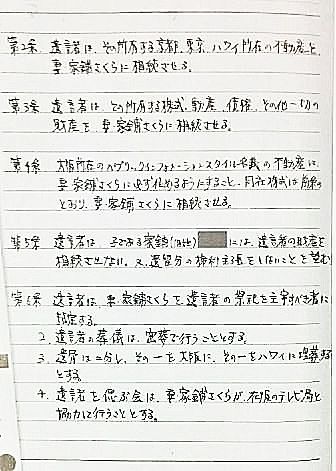 第2条 遺言者は、その所有する京都、東京、ハワイ所在の不動産を
妻 家鋪さくらに相続させる。
第3条 遺言者は、その所有する株式、動産、債権、その他一切の
財産を妻 家鋪さくらに相続させる。
第4条 大阪所在の 名義の不動産は、
妻 家鋪さくらに必ず よるようにすること、同社株式は前条の
とおり、妻 家鋪さくらに相続させる。
第5条 遺言者は、子である家鋪 には、遺言者の財産を
相続させない。又、遺留分の権利主張をしないことを望む
第6条 遺言者は、妻・家鋪さくらを遺言者の祭祀を主宰すべき者に
指定する。
2. 遺言者の葬儀は、密葬で行うこととする。
3. 遺骨は二分し、その一を大阪に、その一をハワイに埋葬する
とする。
4. 遺言者を偲ぶ会は、妻 家鋪さくらが、在阪のテレビ局と
協力して行うこととする。